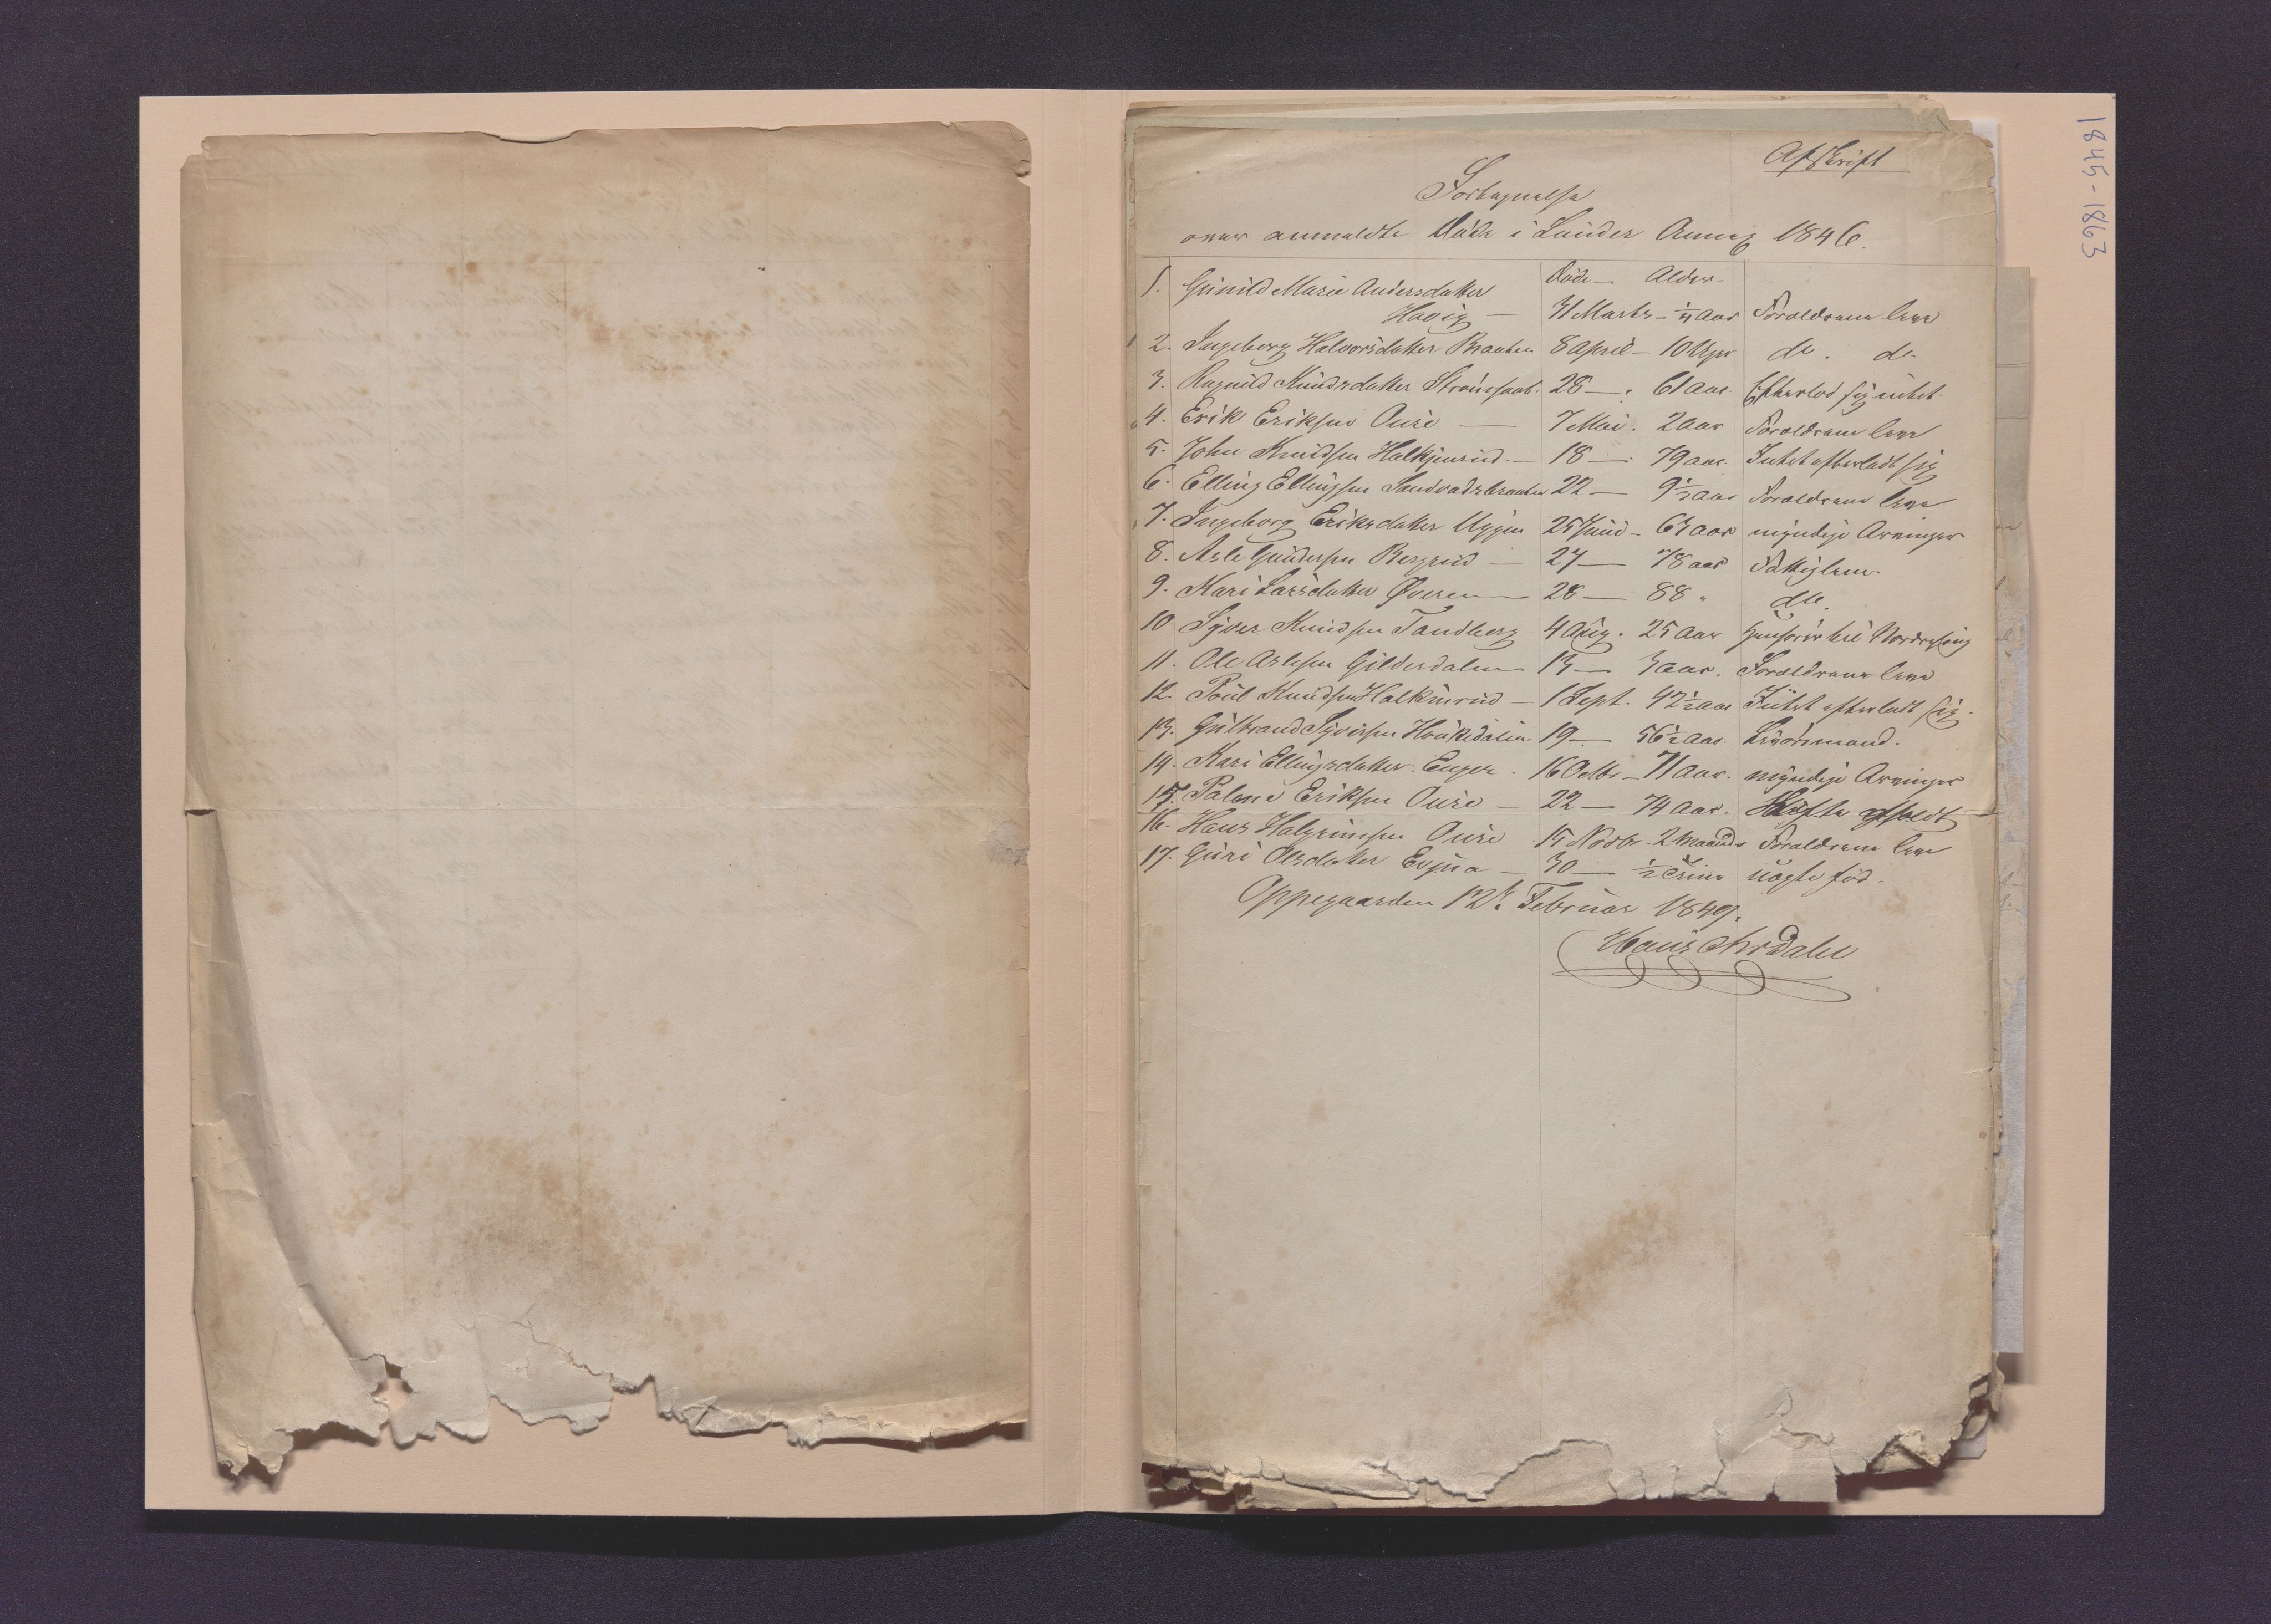 1845-1863
Afskrift
Fortegnelse
over anmeldte Døde i Lunder Annex 1846.
Døde Alder
1. Gunild Marie Andersdatter
Havig — 31 Marts - 1/4 Aar Forældrene leve
2. Ingeborg Halvorsdatter Braaten 8 April - 10 Uger do. do.
3. Ragnild Knudsdatter 28 — 61 Aar. Efterlod sig intet.
4. Erik Eriksen Oure — 7 Mai. 2 Aar Forældrene leve
5. John Knudsen Halkjenrud — 18 — 79 Aar. Intet efterladt sig
6. Elling Ellingsen Sandvadsbraaten 22 — 9 1/2 Aar Forældrene leve
7. Ingeborg Eriksdatter Uggen 25 Juni - 63 Aar myndige Arvinger
8. Asle Gundersen Bergsrud — 27 — 78 Aar Fattiglem.
9. Kari Larsdatter Øveren — 28 — 88 " do.
10 Syver Knudsen Tandberg 4 Aug. 25 Aar
11. Ole Aslesen Gildesdalen 13 — 3 Aar. Forældrene leve
12. Poul Knudsen Halkinrud — 1 Sept. 42 1/2 Aar Intet efterladt sig.
13. Gulbrand Syversen 19 — 56 1/2 Aar.
14. Kari Ellingsdatter Enger. 16 Octbr — 71 Aar. myndige Arvinger
15. Eriksen Oure — 22 — 74 Aar. Skifte afholdt
16. Hans Halgrimsen Oure 15 Novbr - 2 Maaneder Forældrene leve
17. Guri Olsdatter — 30 — 1/2 Time uægte fød.
Oppegaarden 12te Februar 1849.
Hans Chr Dahl